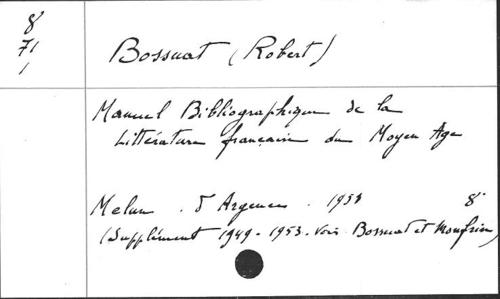 8°
71
1
Bossuat (Robert)
Manuel Bibliographique de la
Littérature française du Moyen Age
Melun. d'Argences. 1951 8°
(Supplément 1949-1953. voir Bossuat et Monfrin)